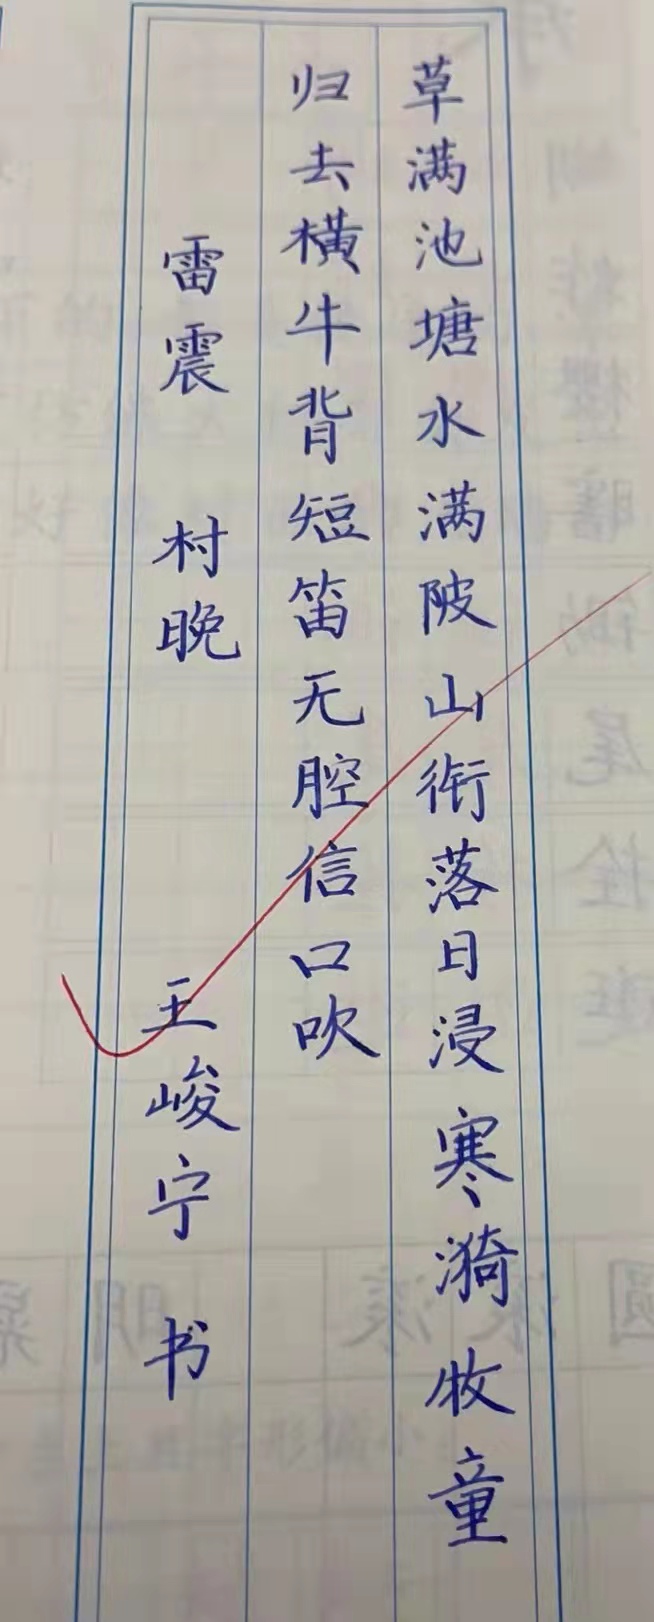 草满池塘水满陂山衔落日浸寒漪牧童
归去横牛背短笛无腔信口吹
雷震 村晚 王峻宁 书